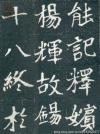 能記釋嬪
楊暉故碭
十八終於